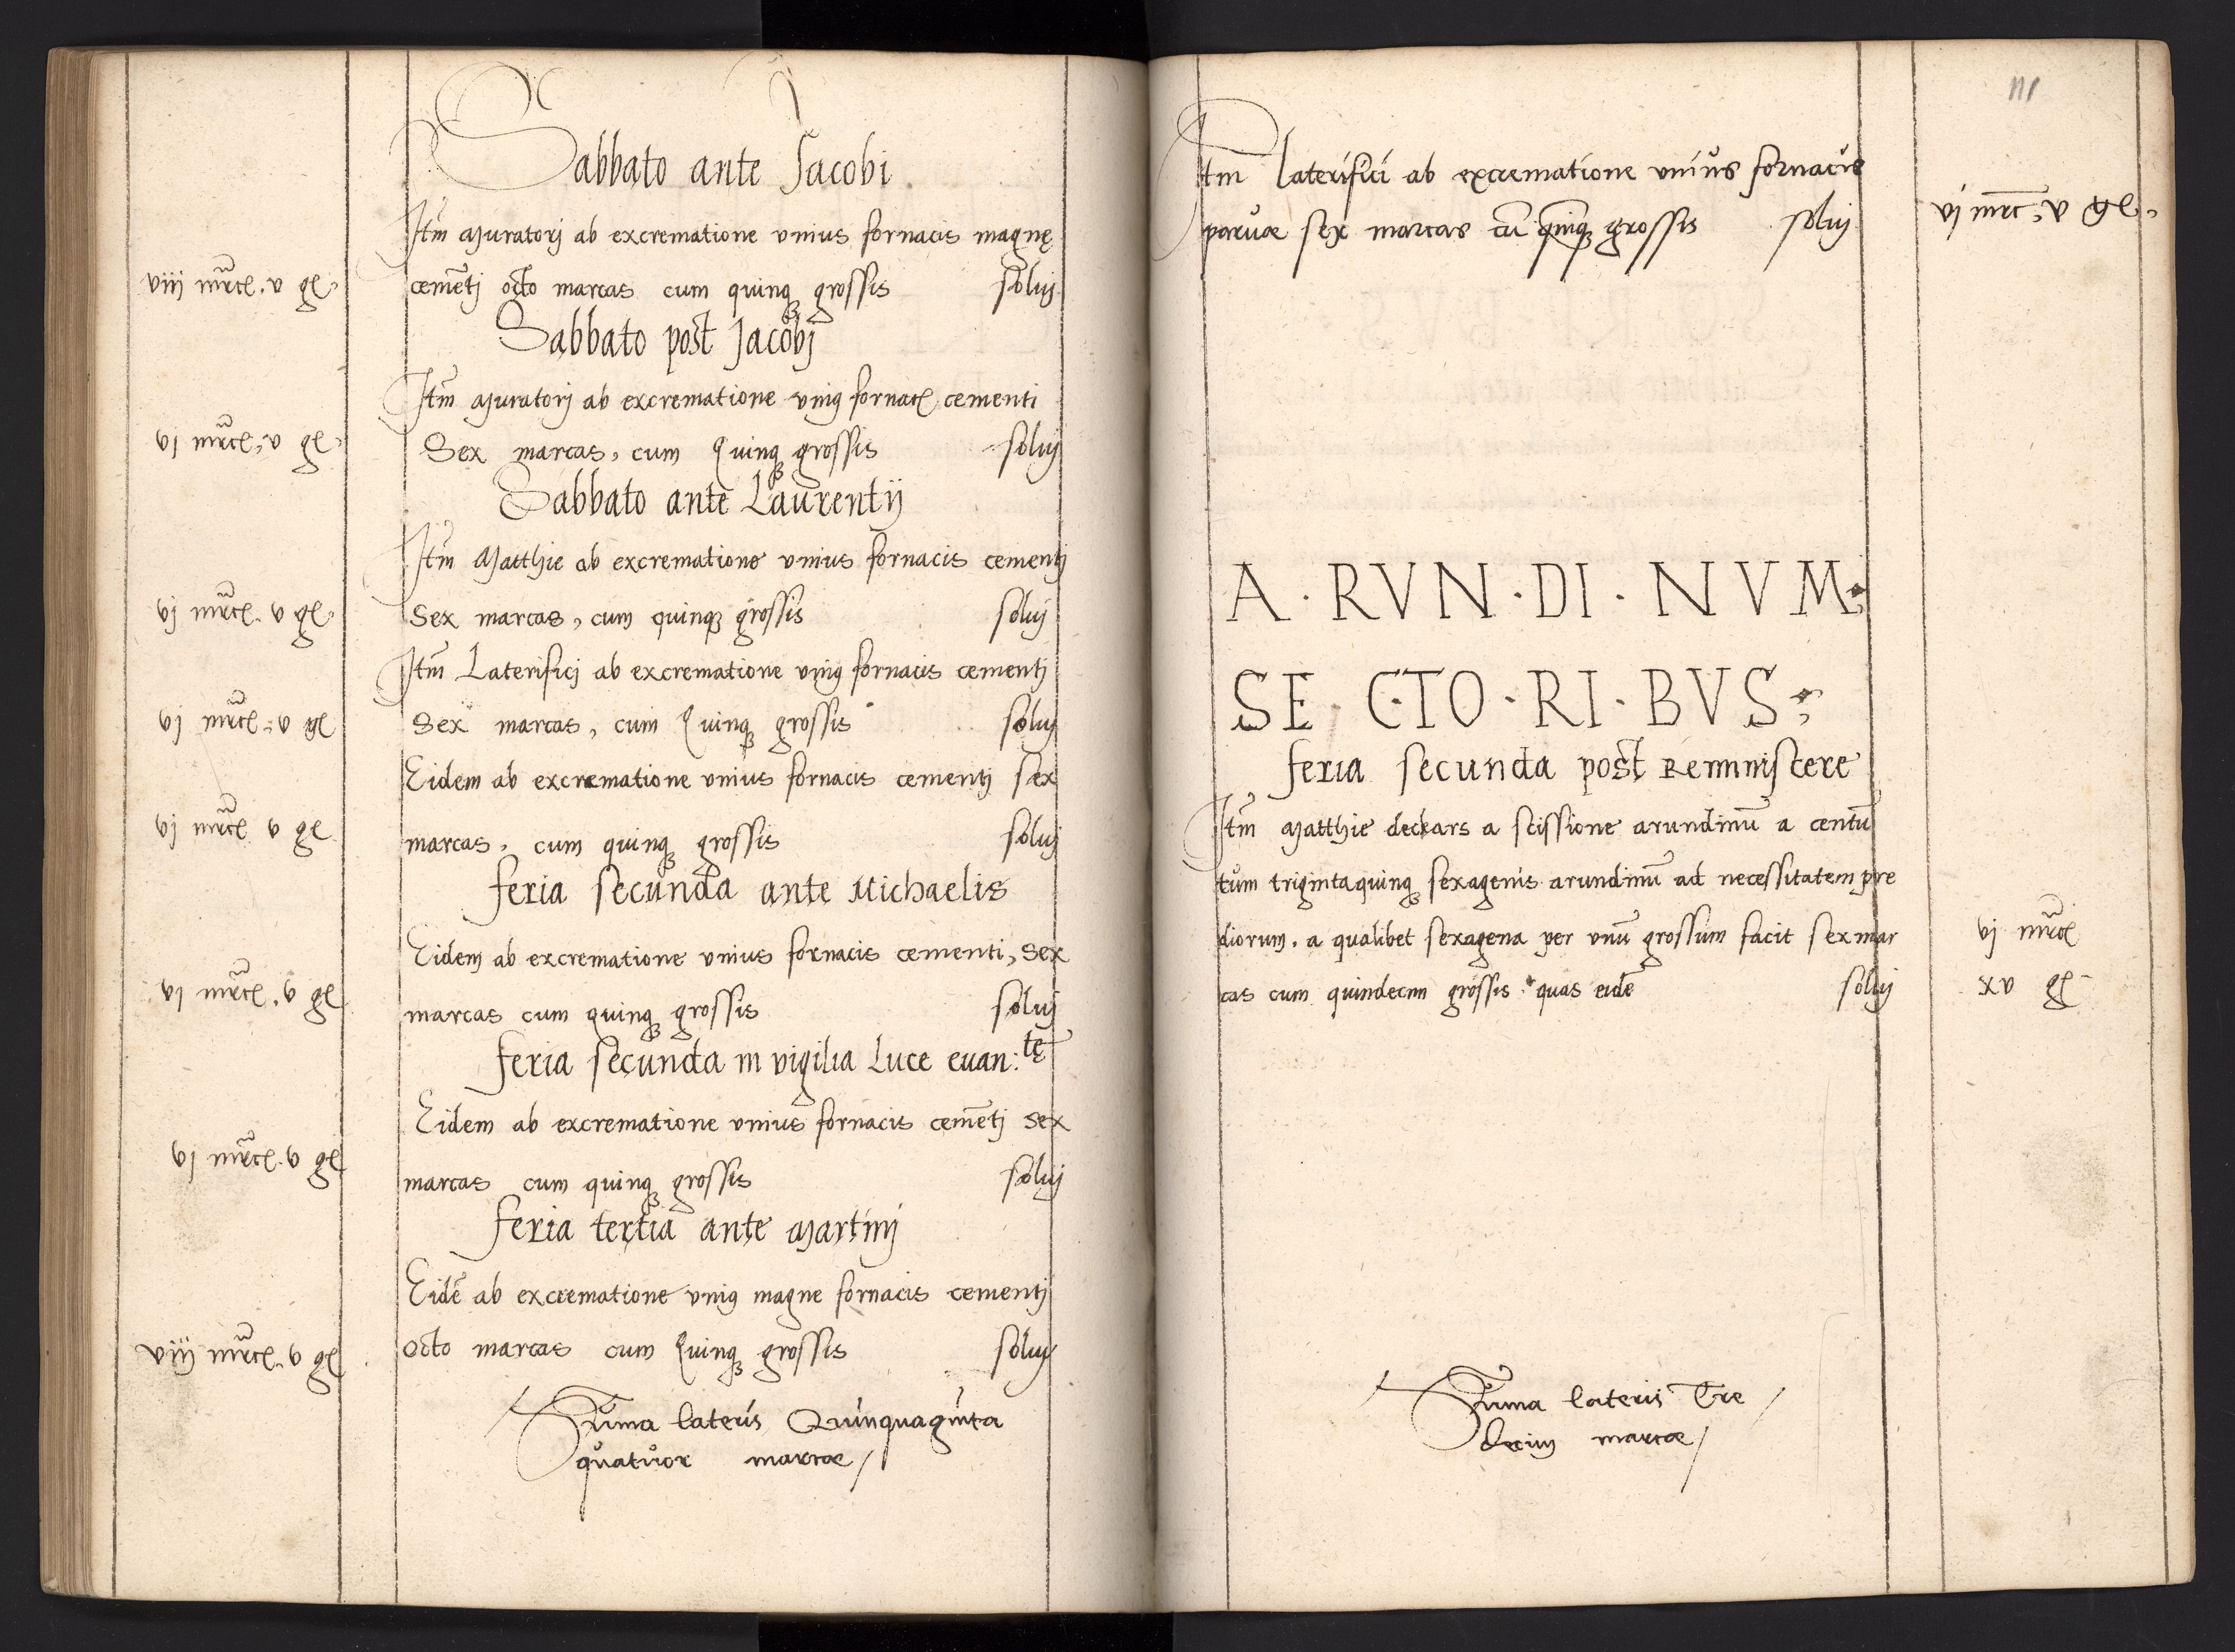 Sabbato ante Jacobi
Itm̃ Muratorj ab excrematione vnius fornacis magnę
viij mrcꝭ. v gꝭ. cemẽtj octo marcas cum quinqꝫ grossis soluj
Sabbato post Jacobj
Itm̃ Muratorj ab excrematione vniꝰ fornacꝭ cementi
vj mrcꝭ. v gꝭ. Sex marcas, cum Quinqꝫ grossis soluj
Sabbato ante Laurentij
Itm̃ Matthie ab excrematione vnius fornacis cementj
vj mrcꝭ. v gꝭ. Sex marcas, cum quinqꝫ grossis soluj
Itm̃ Laterificj ab excrematione vniꝰ fornacis cementj
vj mrcꝭ. v gꝭ Sex marcas, cum Quinqꝫ grossis soluj
Eidem ab excrematione vnius fornacis cementj sex
vj mrcꝭ v gꝭ marcas, cum quinqꝫ grossis soluj
feria secunda ante Michaelis
Eidem ab excrematione vnius fornacis cementi, sex
vj mrcꝭ. v gꝭ marcas cum quinqꝫ grossis soluj
feria secunda in vigilia Luce euan: tę
Eidem ab excrematione vnius fornacis cemẽtj sex
vj mrcꝭ. v gꝭ marcas cum quinqꝫ grossis soluj
feria tertia ante Martinj
Eidẽ ab excrematione vniꝰ magne fornacis cementj
viij mrcꝭ. v gꝭ octo marcas cum Quinqꝫ grossis soluj
Sum̃a lateris Quinquaginta
quatuor marcae/
Itm̃ laterifici ab excrematione vnius fornacis
paruæ sex marcas cũ quinqꝫ grossis soluj vj mrc. v gꝭ.
A·RVN·DI·NVM·
SE·C·TO·RI·BVS·
feria secunda post Reminiscere
Itm̃ Matthie deckars a scissione arundinũ a centũ
tum trigintaquinqꝫ sexagenis arundinũ ad necessitatem pre
diorum. a qualibet sexagena per vnũ grossum facit sex mar vj mrcꝭ
cas cum quindecim grossis quas eidẽ soluj xv gꝭ
Sum̃a lateris Tre
decim marcae/